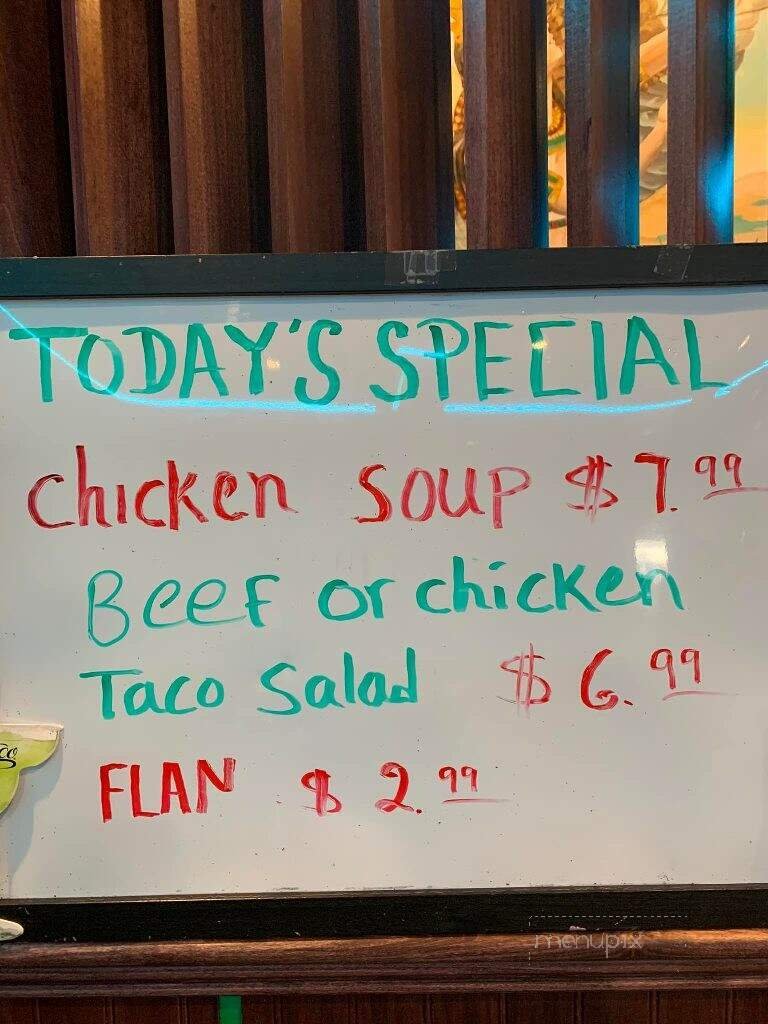 TODAY'S SPECIAL
chicken soup $7.99
Beef or chicken
Taco Salad $6.99
FLAN $2.99
menupix